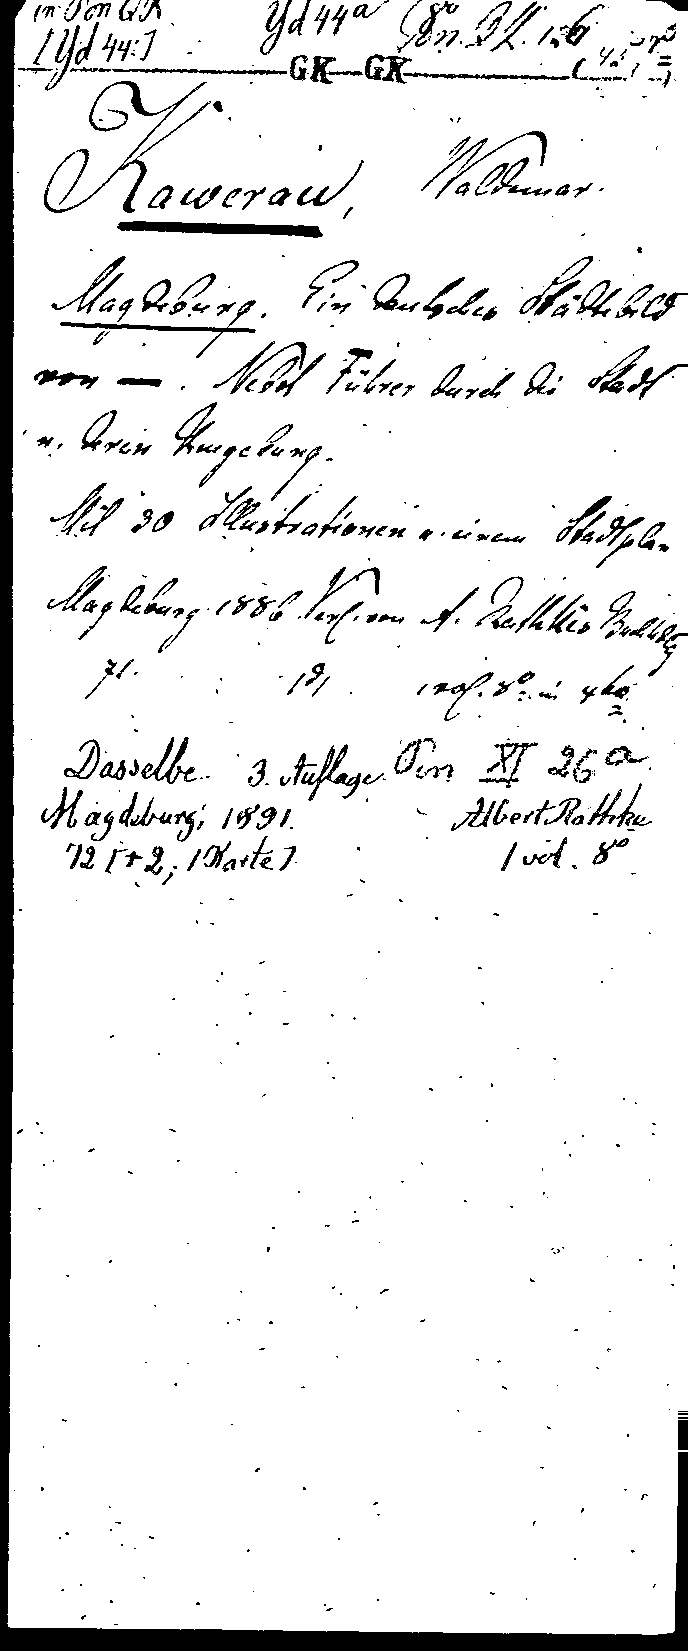 in Pon QK Yd 44a 8° Pon. Zl. 126
[Yd 44:]
GK GK
Kawerau, Waldemar.
Magdeburg. Ein deutsches Städtebild
von — . Nebst Führer durch die Stadt
u. deren Umgebung.
Mit 30 Illustrationen u. einem Stadtplan
Magdeburg 1886 Verl. von A. Rathkes Buchhdlg
71. 1 vol. 8° in 4to
Dasselbe. 3. Auflage. Pon XI 26a
Magdeburg, 1891. Albert Rathke
72 [+ 2, 1 Karte] 1 vol. 8°